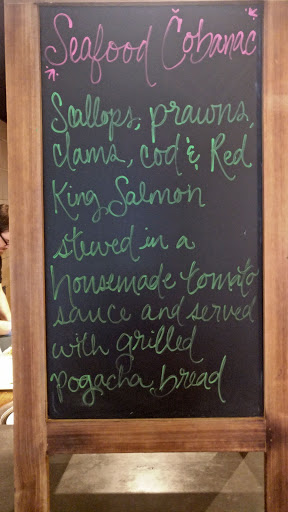 Seafood Čobanac
Scallops, prawns,
clams, cod & Red
King Salmon
stewed in a
housemade tomato
sauce and served
with grilled
pogacha bread